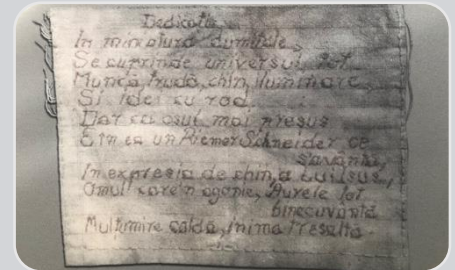 Dedicatie
In miniatura dumitale,
Se cuprinde universul tot.
Muncă, trudă, chin, iluminare,
Si idei cu rod.
Dar ca
E in ea un Riemer Schneider ce
In expresia de chin, a lui Isus,
Omul care'n agonie, Aurele tot
binecuvantă
Multumire caldă, inima tresaltă.